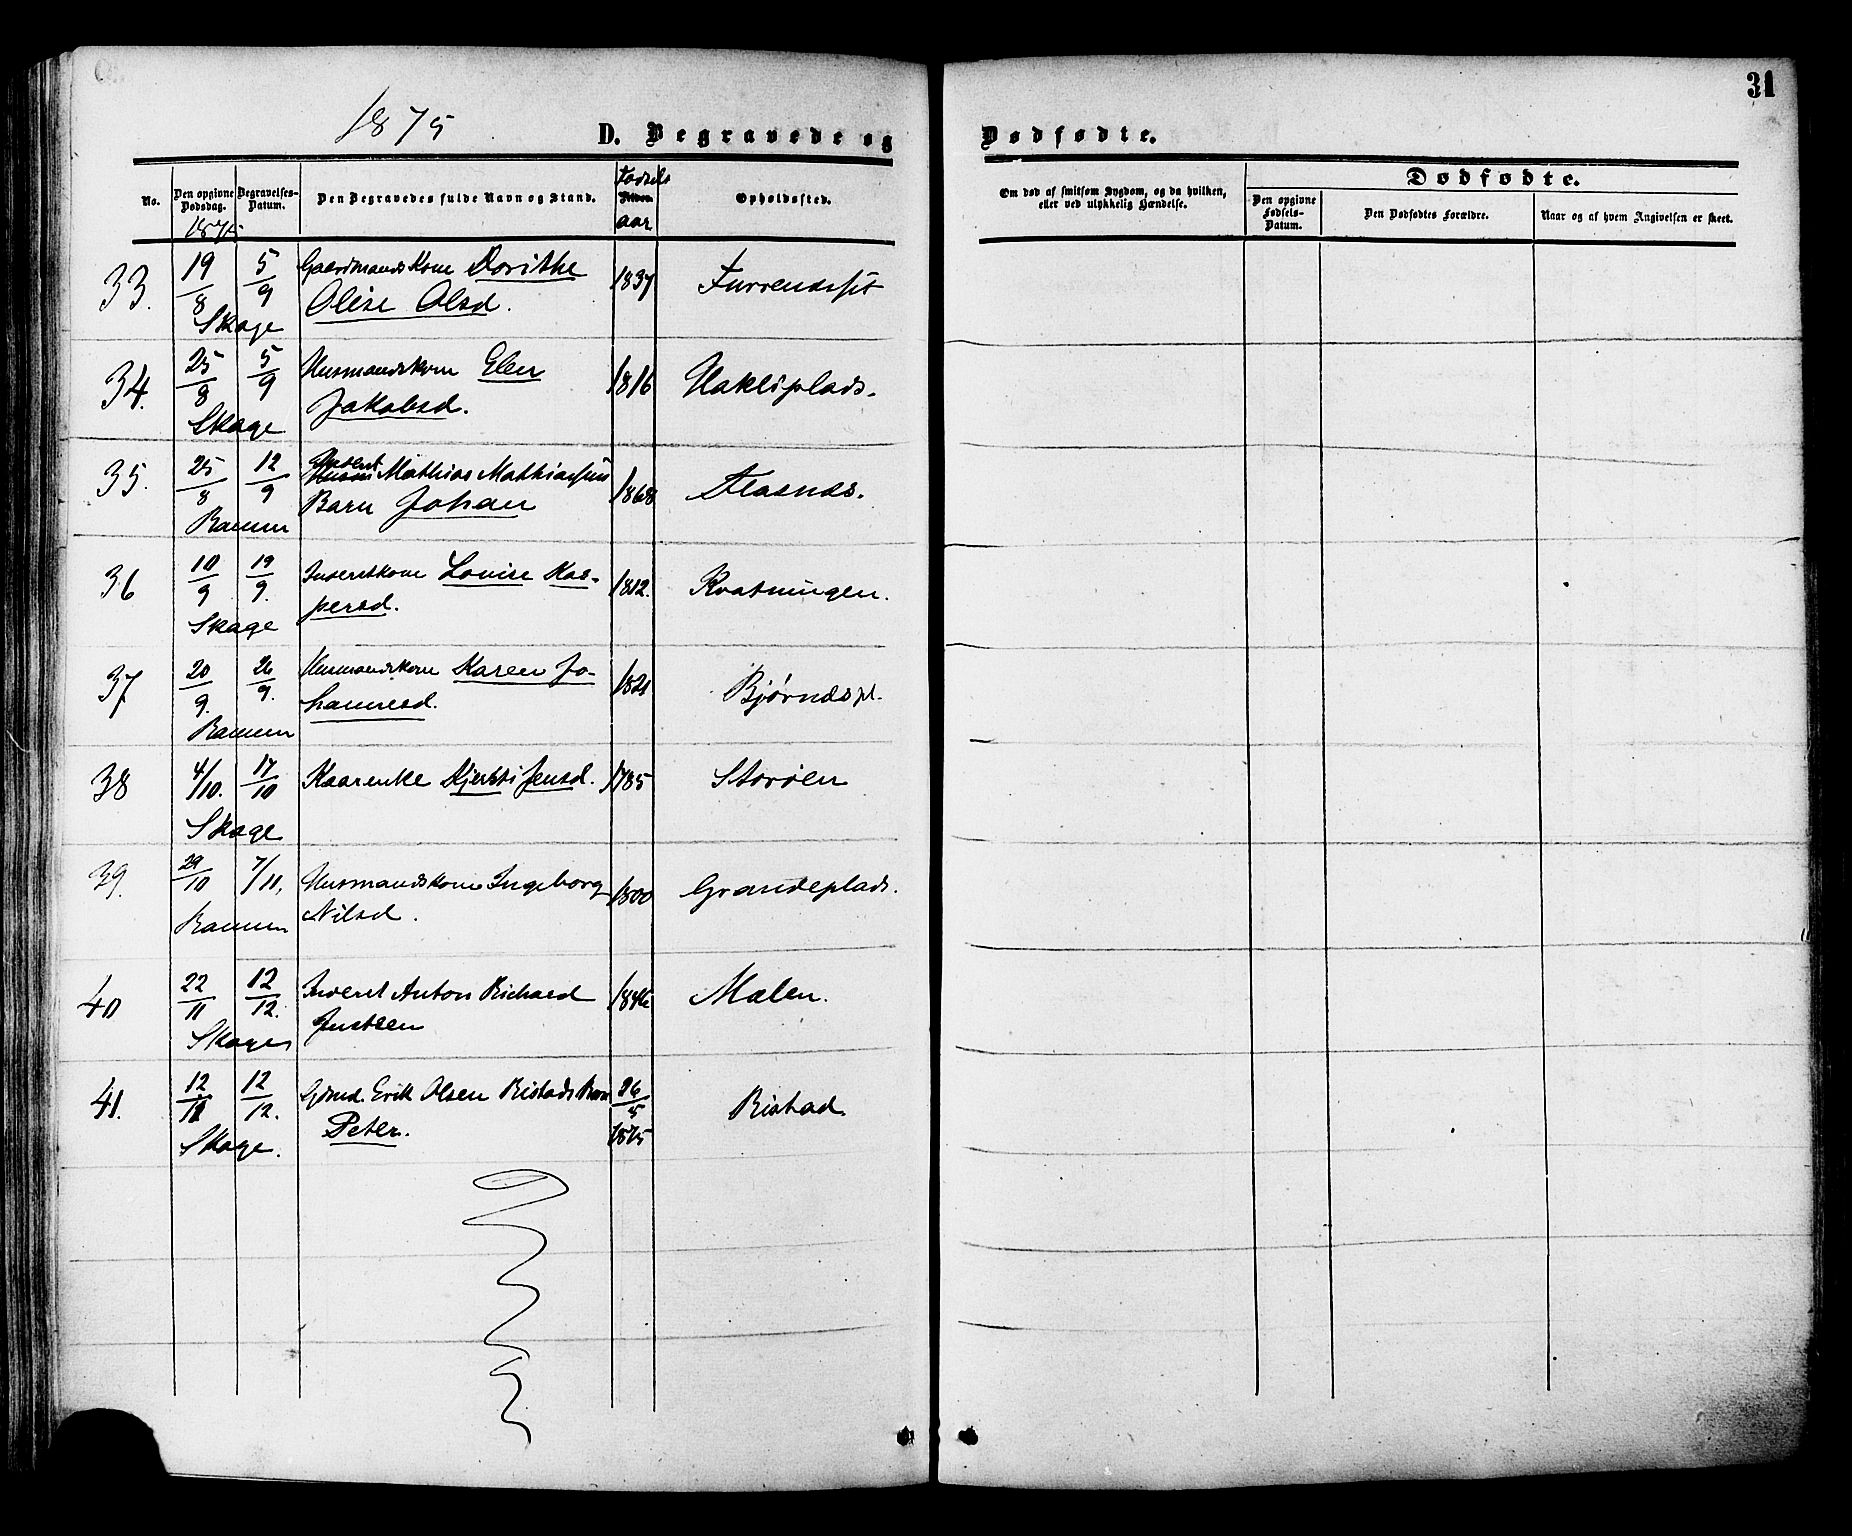 31
1875
D. Begravede og
Dødfødte.
No.
Den opgivne Dødsdag.
1875
Begravelses-Datum.
Den Begravedes fulde Navn og Stand.
Fødsels
aar
Opholdssted.
Om død af smitsom Sygdom, og da hvilken,
eller ved ulykkelig Hændelse.
Dødfødte.
Den opgivne Fødsels-Datum.
Den Dødfødtes Forældre.
Naar og af hvem Angivelsen er skeet.
33. 19/8 5/9 Gaardmandskone Dorithe 1837
Olise Olsd. Furrendsset
Skage
34. 25/8 5/9 Husmandskone Elen 1816 Hakliplads.
Jakobsd.
Skage
35. 25/8 12/9 Mathias Mathiassens 1868
Barn Johan
Ramm
36 10/9 19/9. Inderstkone Louise Kas- 1812. Kvatningen.
persd.
Skage
37 20/9. 26/9. Husmandskone Karen Jo- 1821 Bjørndspl.
hannesd.
Ramm
38 4/10. 17/10 Kaarenke Kjersti Jensd. 1785 Storøen
Skage
39. 29/10 7/11, Husmandskone Ingeborg 1800 Grandeplads.
Nilsd.
Ramm
40 22/11 12/12. Inderst Anton Richard 1846 Mælen.
Justsen
Skage
41. 12/11 12/12. Gdmd. Erik Olsen Ristads Barn 26/5 1875 Ristad
Peter.
Skage.